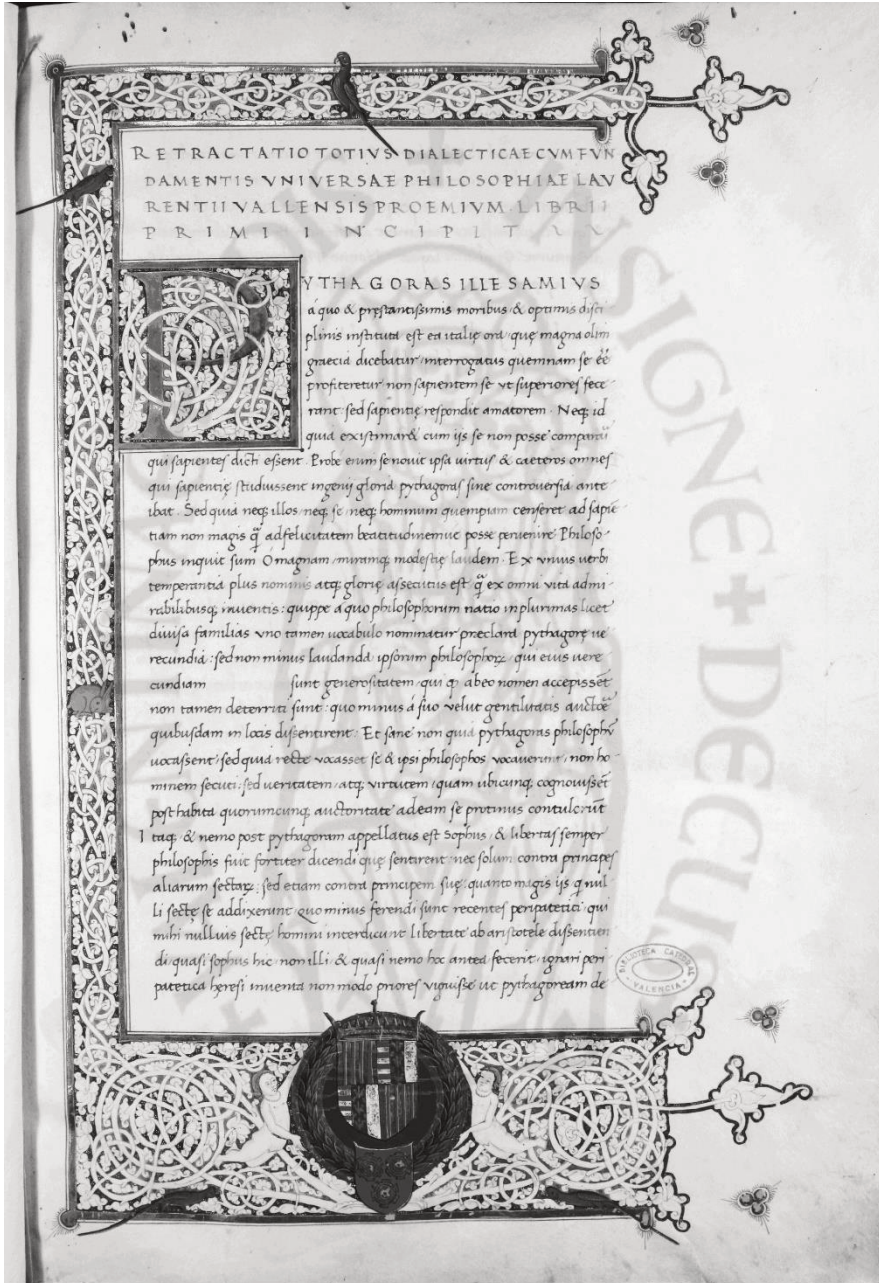 RETRACTATIO TOTIVS DIALECTICAE CVM FVN
DAMENTIS VNIVERSAE PHILOSOPHIAE LAV
RENTII VALLENSIS PROEMIVM LIBRI
PRIMI INCIPIT
PYTHAGORAS ILLE SAMIVS
á quo & pręstantissimis moribus & optimis disci
plinis instituta est ea italię ora quę magna olim
graecia dicebatur interrogatus quemnam se eē
profiteretur non sapientem se vt superiores fece
rant: sed sapientię respondit amatorem. Neq; id
quia existimaret cum iis se non posse
qui sapientes dicti essent. Probe enim se novit ipsa virtus & caeteros omnes
qui sapientię studuissent ingenij gloria pythagoras sine controversia ante
ibat. Sed quia neq; illos neq; se neq; hominum quempiam censeret ad sapiē
tiam non magis q̄ ad felicitatem beatitudinemue posse peruenire Philoso
phus inquit sum Ó magnam miramq; modestię laudem. Ex vnius verbi
temperantia plus nominis atq; glorię assecutus est q̄ ex omni vita admi
rabilibusq; inuentis: quippe a quo philosophorum natio in plurimas licet
diuisa familias vno tamen uocabulo nominatur preclara pythagorę ue
recundia: sed non minus laudanda ipsorum philosophoꝝ qui eius vere
cundiam sunt generositatem qui ab eo nomen accepissēt
non tamen deterriti sunt: quo minus á suo velut gentilitatis auctōē
quibusdam in locis dissentirent. Et sane non quia pythagoras philosophū
uocassent sed quia recte vocasset se & ipsi philosophos vocauerunt, non ho
minem secuti: sed veritatem, atq; virtutem, quam ubicunq; cognouissēt
posthabita quorumcunq; auctoritate ad eam se protinus contulerūt
Itaq; & nemo post pythagoram appellatus est Sophus, & libertas semper
philosophis fuit fortiter dicendi quę sentirent nec solum contra principes
aliarum sectaꝝ, sed etiam contra principem suę, quanto magis iis q nul
li sectę se addixerunt Quo minus ferendi sunt recentes peripatetici qui
mihi nullius sectę homini interdicunt libertate ab aristotele dissentien
di, quasi sophus hic non illi & quasi nemo hoc antea fecerit, ignari peri
patetica heresi inuenta non modo priores viguisse ut pythagoream de
INSIGNE + DECUS
BIBLIOTECA CATEDRAL
VALENCIA